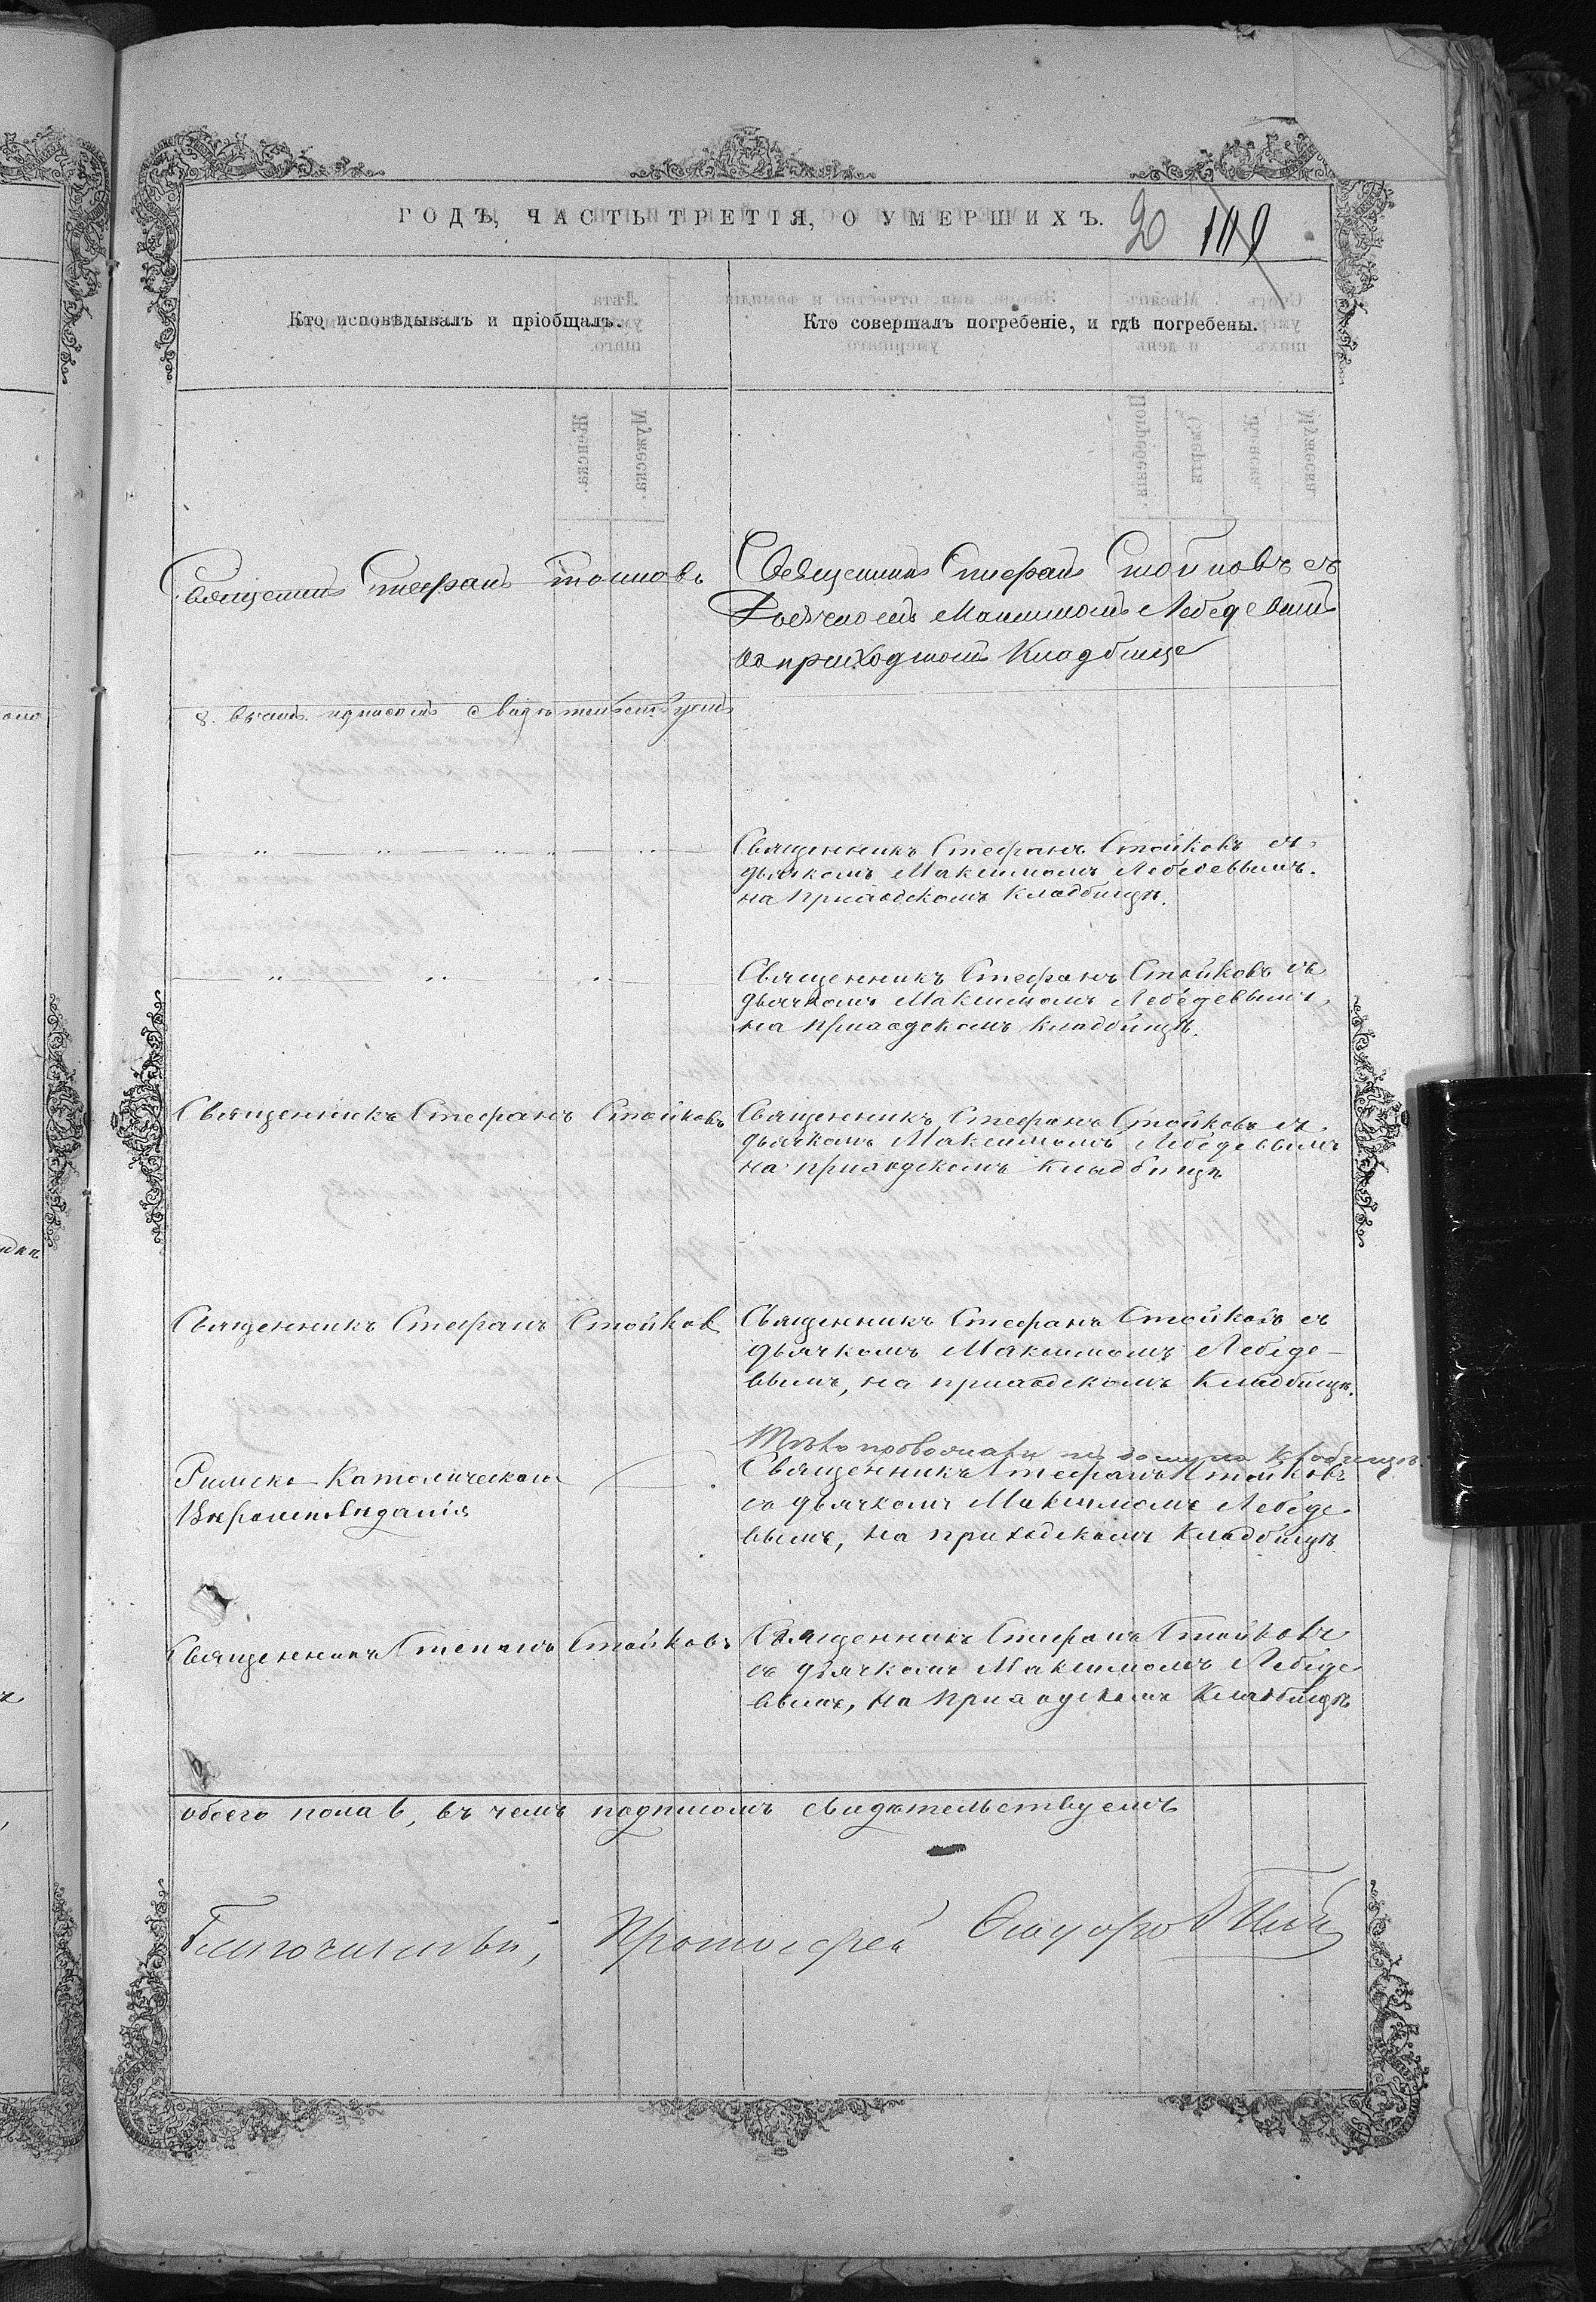 ГОДѢ, ЧАСТЬ ТРЕТІЯ, О УМЕРШИХЪ. 20
Кто исповѣдывалъ и пріобщалъ.
Кто совершалъ погребеніе, и гдѣ погребены.
Священникъ Стефанъ Стойковъ
Священникъ Стефанъ Стойковъ съ
Дьячкомъ Максимомъ Лебедевымъ
на приходскомъ Кладбище
8. въ чемъ подписомъ свидѣтельствуемъ
Священникъ Стефанъ Стойковъ съ
дьячкомъ Максимомъ Лебедевымъ.
на приходскомъ кладбищѣ.
Священникъ Стефанъ Стойковъ съ
дьячкомъ Максимомъ Лебедевымъ,
на приходскомъ кладбищѣ.
Священникъ Стефанъ Стойковъ
Священникъ Стефанъ Стойковъ съ
дьячкомъ Максимомъ Лебедевымъ
на приходскомъ кладбищѣ
Священникъ Стефанъ Стойков
Священникъ Стефанъ Стойковъ съ
дьячкомъ Максимомъ Лебеде-
вымъ, на приходскомъ кладбищѣ.
Римско-Католическаго
Вѣроисповѣданія
Тѣло провожали кладбище.
Священникъ Стефанъ Стойковъ
съ дьячкомъ Максимомъ Лебеде-
вымъ, на приходскомъ кладбищѣ
Священникъ Стефанъ Стойковъ
Священникъ Стефанъ Стойковъ
съ дьячкомъ Максимомъ Лебеде-
вымъ, на приходскомъ кладбищѣ
обоего пола 6, въ чемъ подписомъ свидѣтельствуемъ
Благочинный, Протоіерей